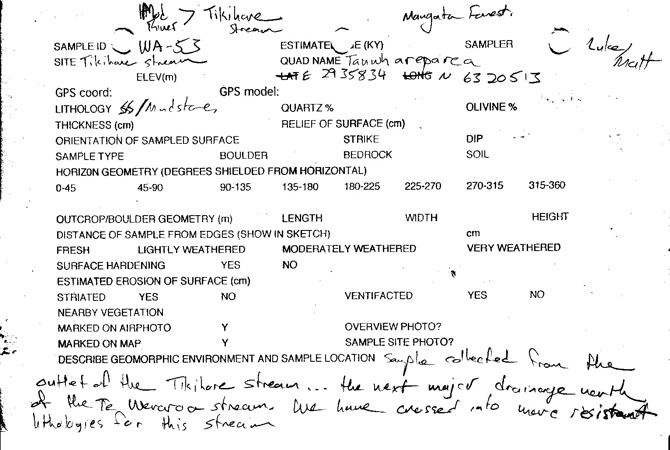 Mot River > Tikihore Stream Mangatu Forest.
SAMPLE ID WA-53 ESTIMATE E (KY) SAMPLER Luke/Matt
SITE Tikihore stream QUAD NAME Tauwhareparea
ELEV(m) LAT E 2935834 LONG N 6320513
GPS coord: GPS model:
LITHOLOGY ss/Mudstones QUARTZ % OLIVINE %
THICKNESS (cm) RELIEF OF SURFACE (cm)
ORIENTATION OF SAMPLED SURFACE STRIKE DIP
SAMPLE TYPE BOULDER BEDROCK SOIL
HORIZON GEOMETRY (DEGREES SHIELDED FROM HORIZONTAL)
0-45 45-90 90-135 135-180 180-225 225-270 270-315 315-360
OUTCROP/BOULDER GEOMETRY (m) LENGTH WIDTH HEIGHT
DISTANCE OF SAMPLE FROM EDGES (SHOW IN SKETCH) cm
FRESH LIGHTLY WEATHERED MODERATELY WEATHERED VERY WEATHERED
SURFACE HARDENING YES NO
ESTIMATED EROSION OF SURFACE (cm)
STRIATED YES NO VENTIFACTED YES NO
NEARBY VEGETATION
MARKED ON AIRPHOTO Y OVERVIEW PHOTO?
MARKED ON MAP Y SAMPLE SITE PHOTO?
DESCRIBE GEOMORPHIC ENVIRONMENT AND SAMPLE LOCATION Sample collected from the
outlet of the Tikihore stream... the next major drainage north
of the Te Weraroa stream. We have crossed into more resistant
lithologies for this stream